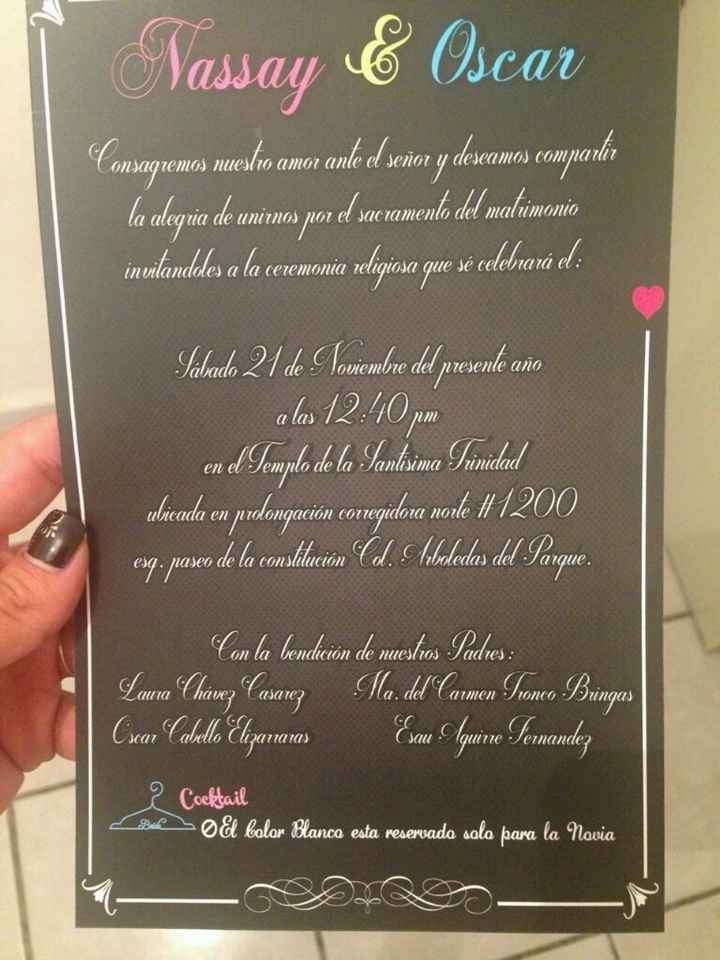 Nassay & Oscar
Consagremos nuestro amor ante el señor y deseamos compartir
la alegria de unirnos por el sacramento del matrimonio
invitandoles a la ceremonia religiosa que sé celebrará el:
Sábado 21 de Noviembre del presente año
a las 12:40 pm
en el Templo de la Santisima Trinidad
ubicada en prolongación corregidora norte #1200
esq. paseo de la constitución Col. Arboledas del Parque.
Con la bendición de nuestros Padres:
Laura Chávez Casarez Ma. del Carmen Tronco Bringas
Oscar Cabello Elizarraras Esau Aguirre Fernandez
Cocktail
Bride
El Color Blanco esta reservado solo para la Novia